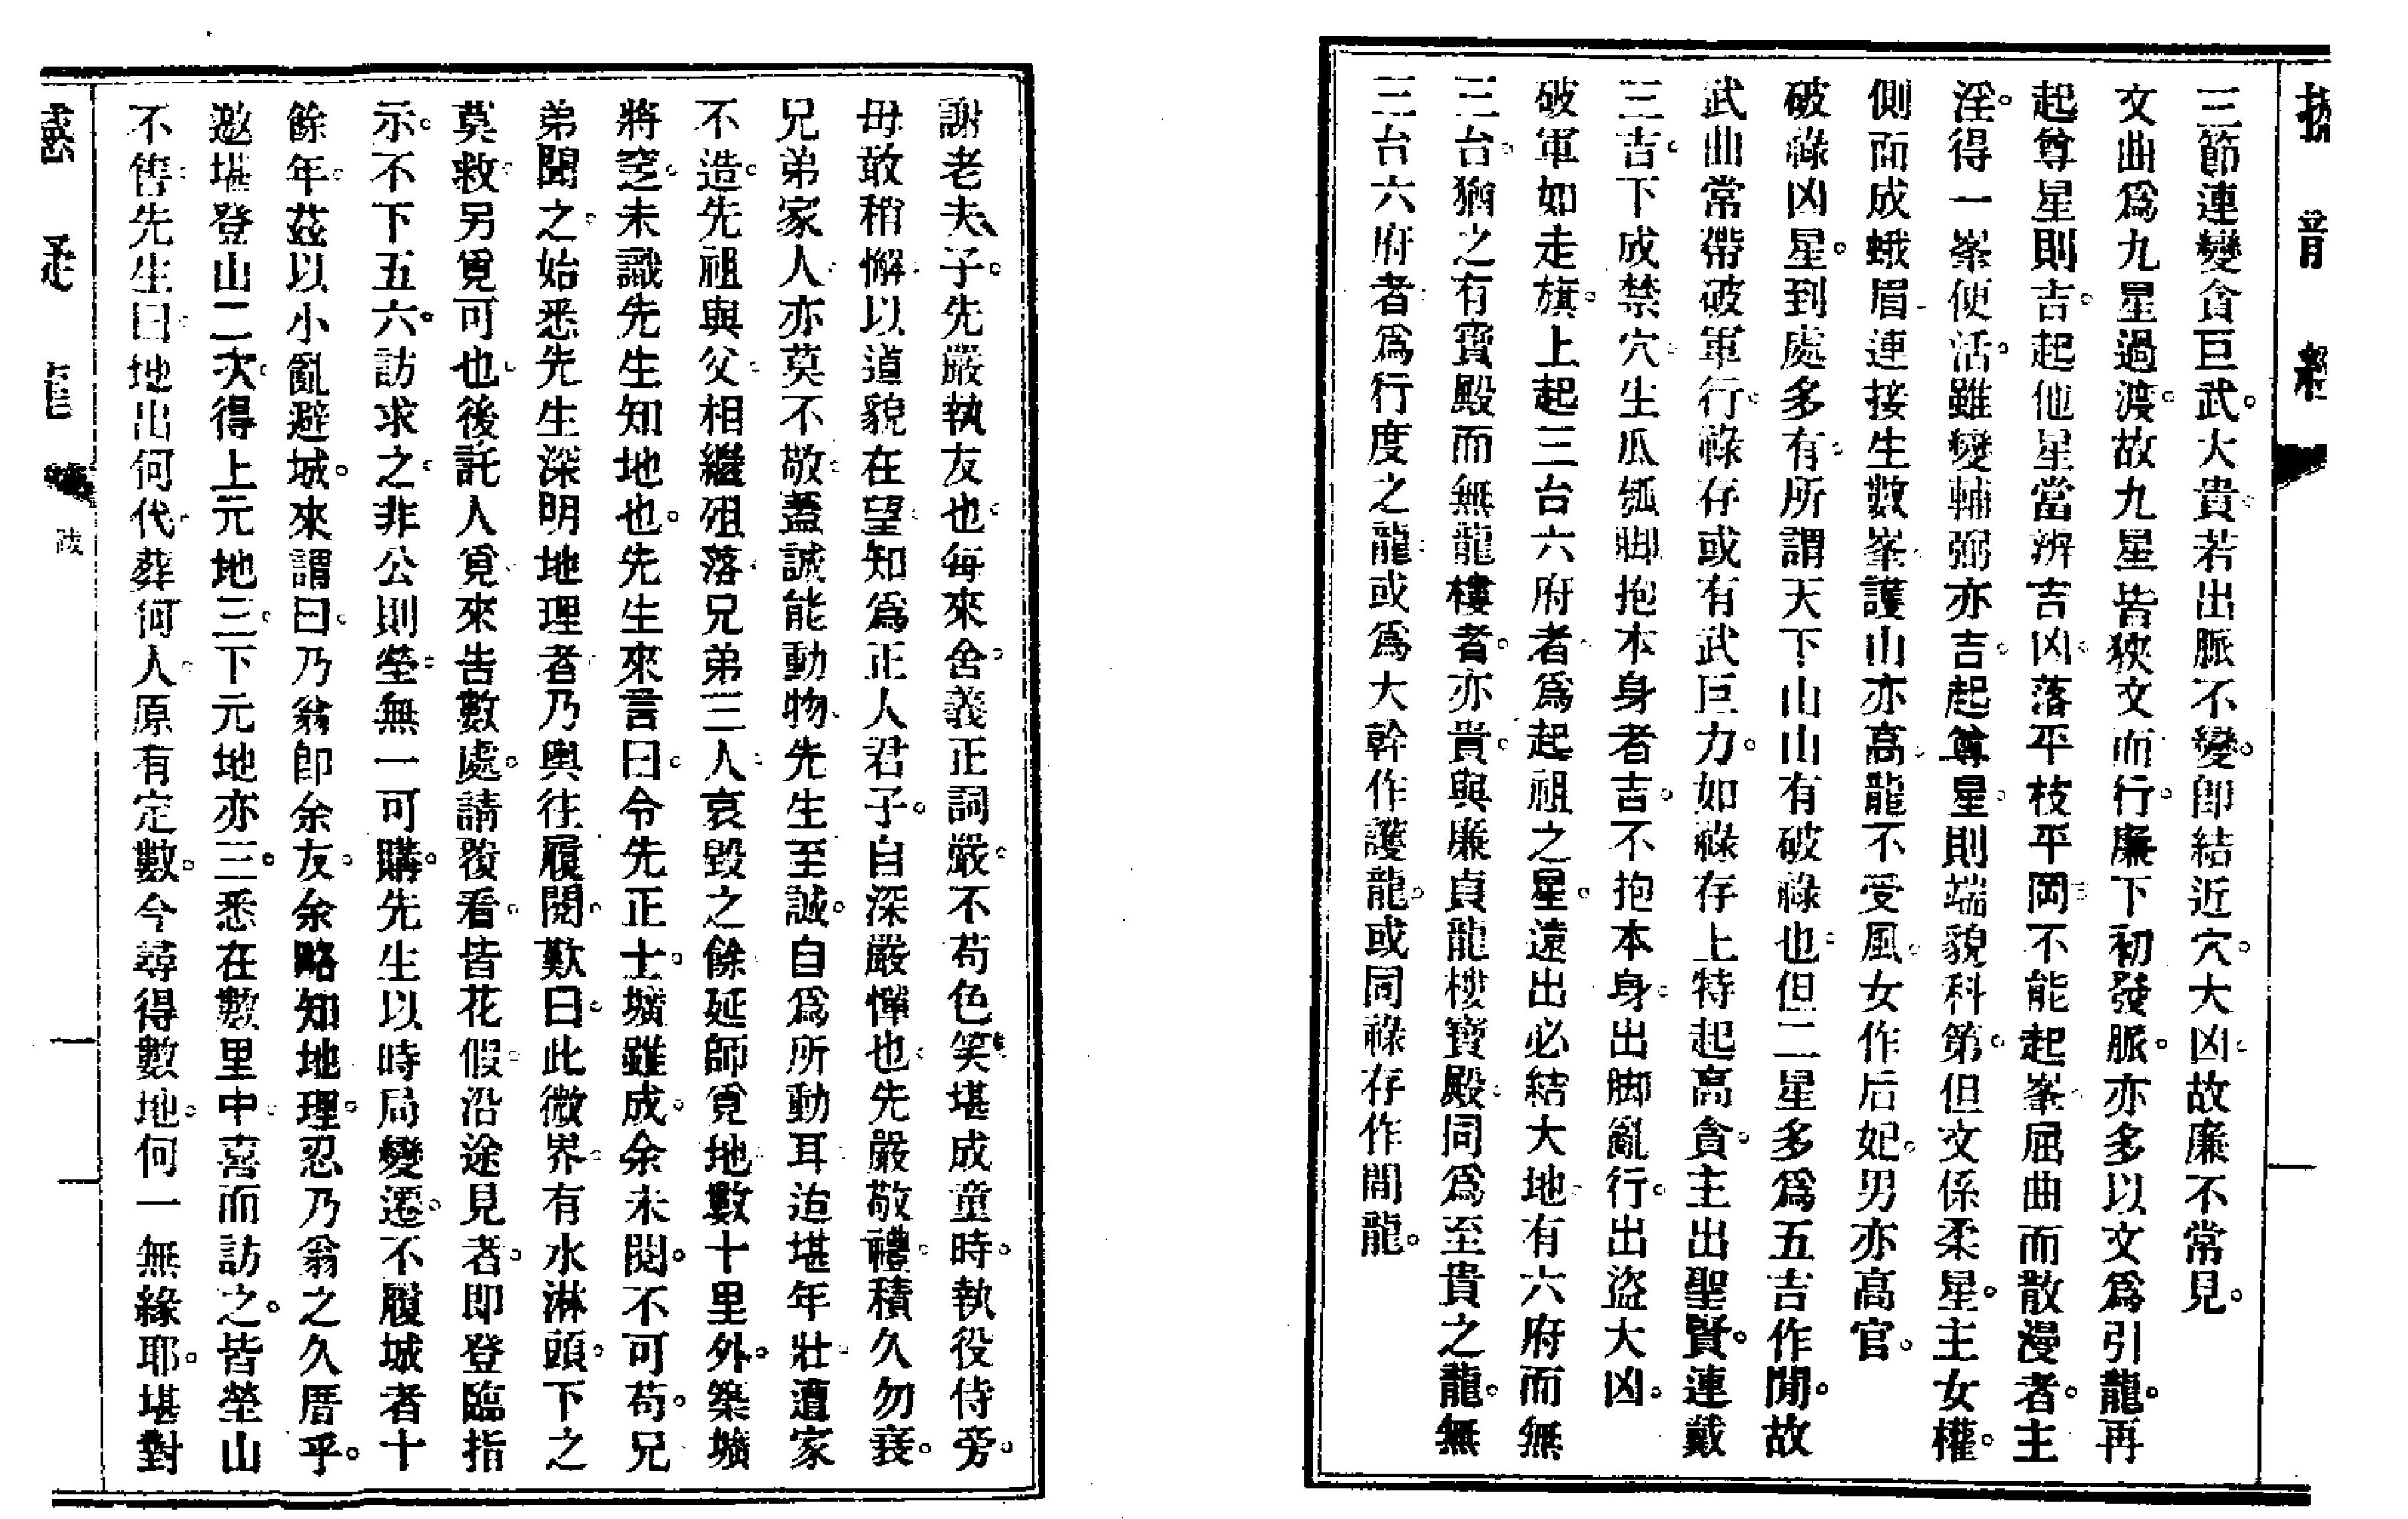 三節連變貪巨武。大貴。若出脈不變。卽結近穴。大凶。故廉不常見。
文曲爲九星過渡。故九星皆狹文而行。廉下初發脈。亦多以文爲引龍。再
起尊星則吉。起他星當辨吉凶。落平枝平岡。不能起峯。屈曲而散漫者。主
淫。得一峯便活。雖變輔弼亦吉。起尊星。則端貌科第。但文係柔星。主女權。
側面成蛾眉。連接生數峯。護山亦高。龍不受風。女作后妃。男亦高官。
破祿凶星。到處多有。所謂天下山山有破祿也。但二星多爲五吉作閒。故
武曲常帶破軍行。祿存或有武巨力。如祿存上特起高貪。主出聖賢。連戴
三吉。下成禁穴。生瓜瓠脚抱本身者吉。不抱本身。出脚亂行。出盜大凶。
破軍如走旗。上起三台六府者。爲起祖之星。遠出必結大地。有六府而無
三台。猶之有寶殿而無龍樓者。亦貴。與廉貞龍樓寶殿。同爲至貴之龍。無
三台六府者。爲行度之龍。或爲大幹作護龍。或同祿存作閒龍。
謝老夫子。先嚴執友也。每來舍。義正詞嚴。不苟色笑。堪成童時。執役侍旁。
毋敢稍懈。以道貌在望。知爲正人君子。自深嚴憚也。先嚴敬禮。積久勿衰。
兄弟家人。亦莫不敬。蓋誠能動物。先生至誠。自爲所動耳。迨堪年壯。遭家
不造。先祖與父。相繼殂落。兄弟三人。哀毀之餘。延師覓地數十里外。築壙
將窆。未識先生知地也。先生來言曰。令先正士。壙雖成。余未閱。不可苟。兄
弟聞之。始悉先生深明地理者。乃輿往履閱。歎曰。此微界。有水淋頭。下之
莫救。另覓可也。後託人覓。來告數處。請覆看。皆花假。沿途見者。即登臨指
示。不下五六。訪求之。非公則塋。無一可購。先生以時局變遷。不履城者十
餘年。茲以小亂避城。來謂曰。乃翁卽余友。余略知地理。忍乃翁之久厝乎。
邀堪登山二次。得上元地三。下元地亦三。悉在數里中。喜而訪之。皆塋山
不售。先生曰。地出何代。葬何人。原有定數。今尋得數地。何一無緣耶。堪對
疑龍
跋